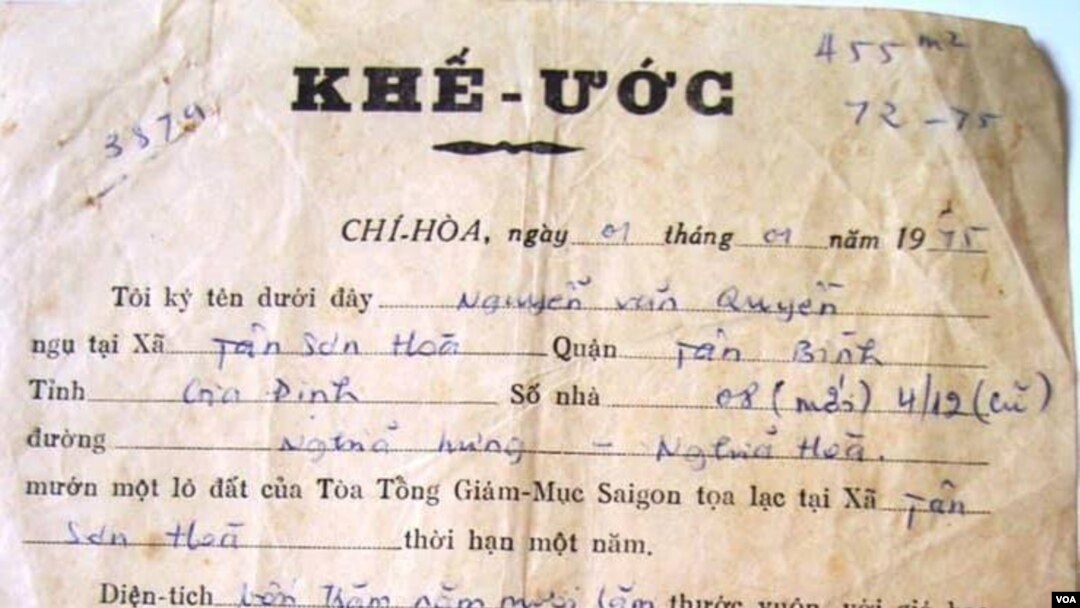 455 m2
KHẾ-ƯỚC
72-75
3879
CHÍ-HÒA, ngày 01 tháng 01 năm 1975
Tôi ký tên dưới đây Nguyễn văn Quyền
ngụ tại Xã Tân Sơn Hoà Quận Tân Bình
Tỉnh Gia Định Số nhà 08 (mới) 4/12 (cũ)
đường Nghĩa hưng - Nghĩa Hoà.
mướn một lô đất của Tòa Tổng Giám-Mục Saigon tọa lạc tại Xã Tân
Sơn Hoà thời hạn một năm.
Diện-tích bốn trăm năm mươi lăm thước vuông, với giá
VOA